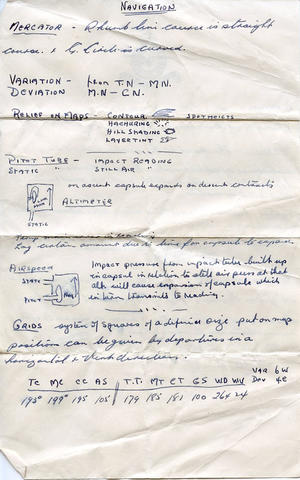 NAVIGATION
MERCATOR - Rhumb line course is straight
course. & G. Circle is curved.
VARIATION - from T.N - M.N.
DEVIATION M.N - C.N.
RELIEF ON MAPS - CONTOUR SPOTHEIGTS
HACHURING
HILL SHADING
LAYERTINT
PITOT TUBE - IMPACT READING
STATIC " STILL AIR "
on ascent capsule expands on descent contracts
ALTIMETER
STATIC
Lag certain amount due to time for capsule to expand.
AIRSPEED Impact pressure from impact tube built up
STATIC in capsule in relation to still air press at that
alt. will cause expansion of capsule which
PITOT in turn transmits to reading.
GRIDS system of squares of a definite size put on map
position can be given by departures in a
horizontal & vert directions.
Tc Mc cc AS T.T. MT CT GS WD WV VAR 6W
DEV 4E
195° 199° 195 105 179 185 181 100 264 24